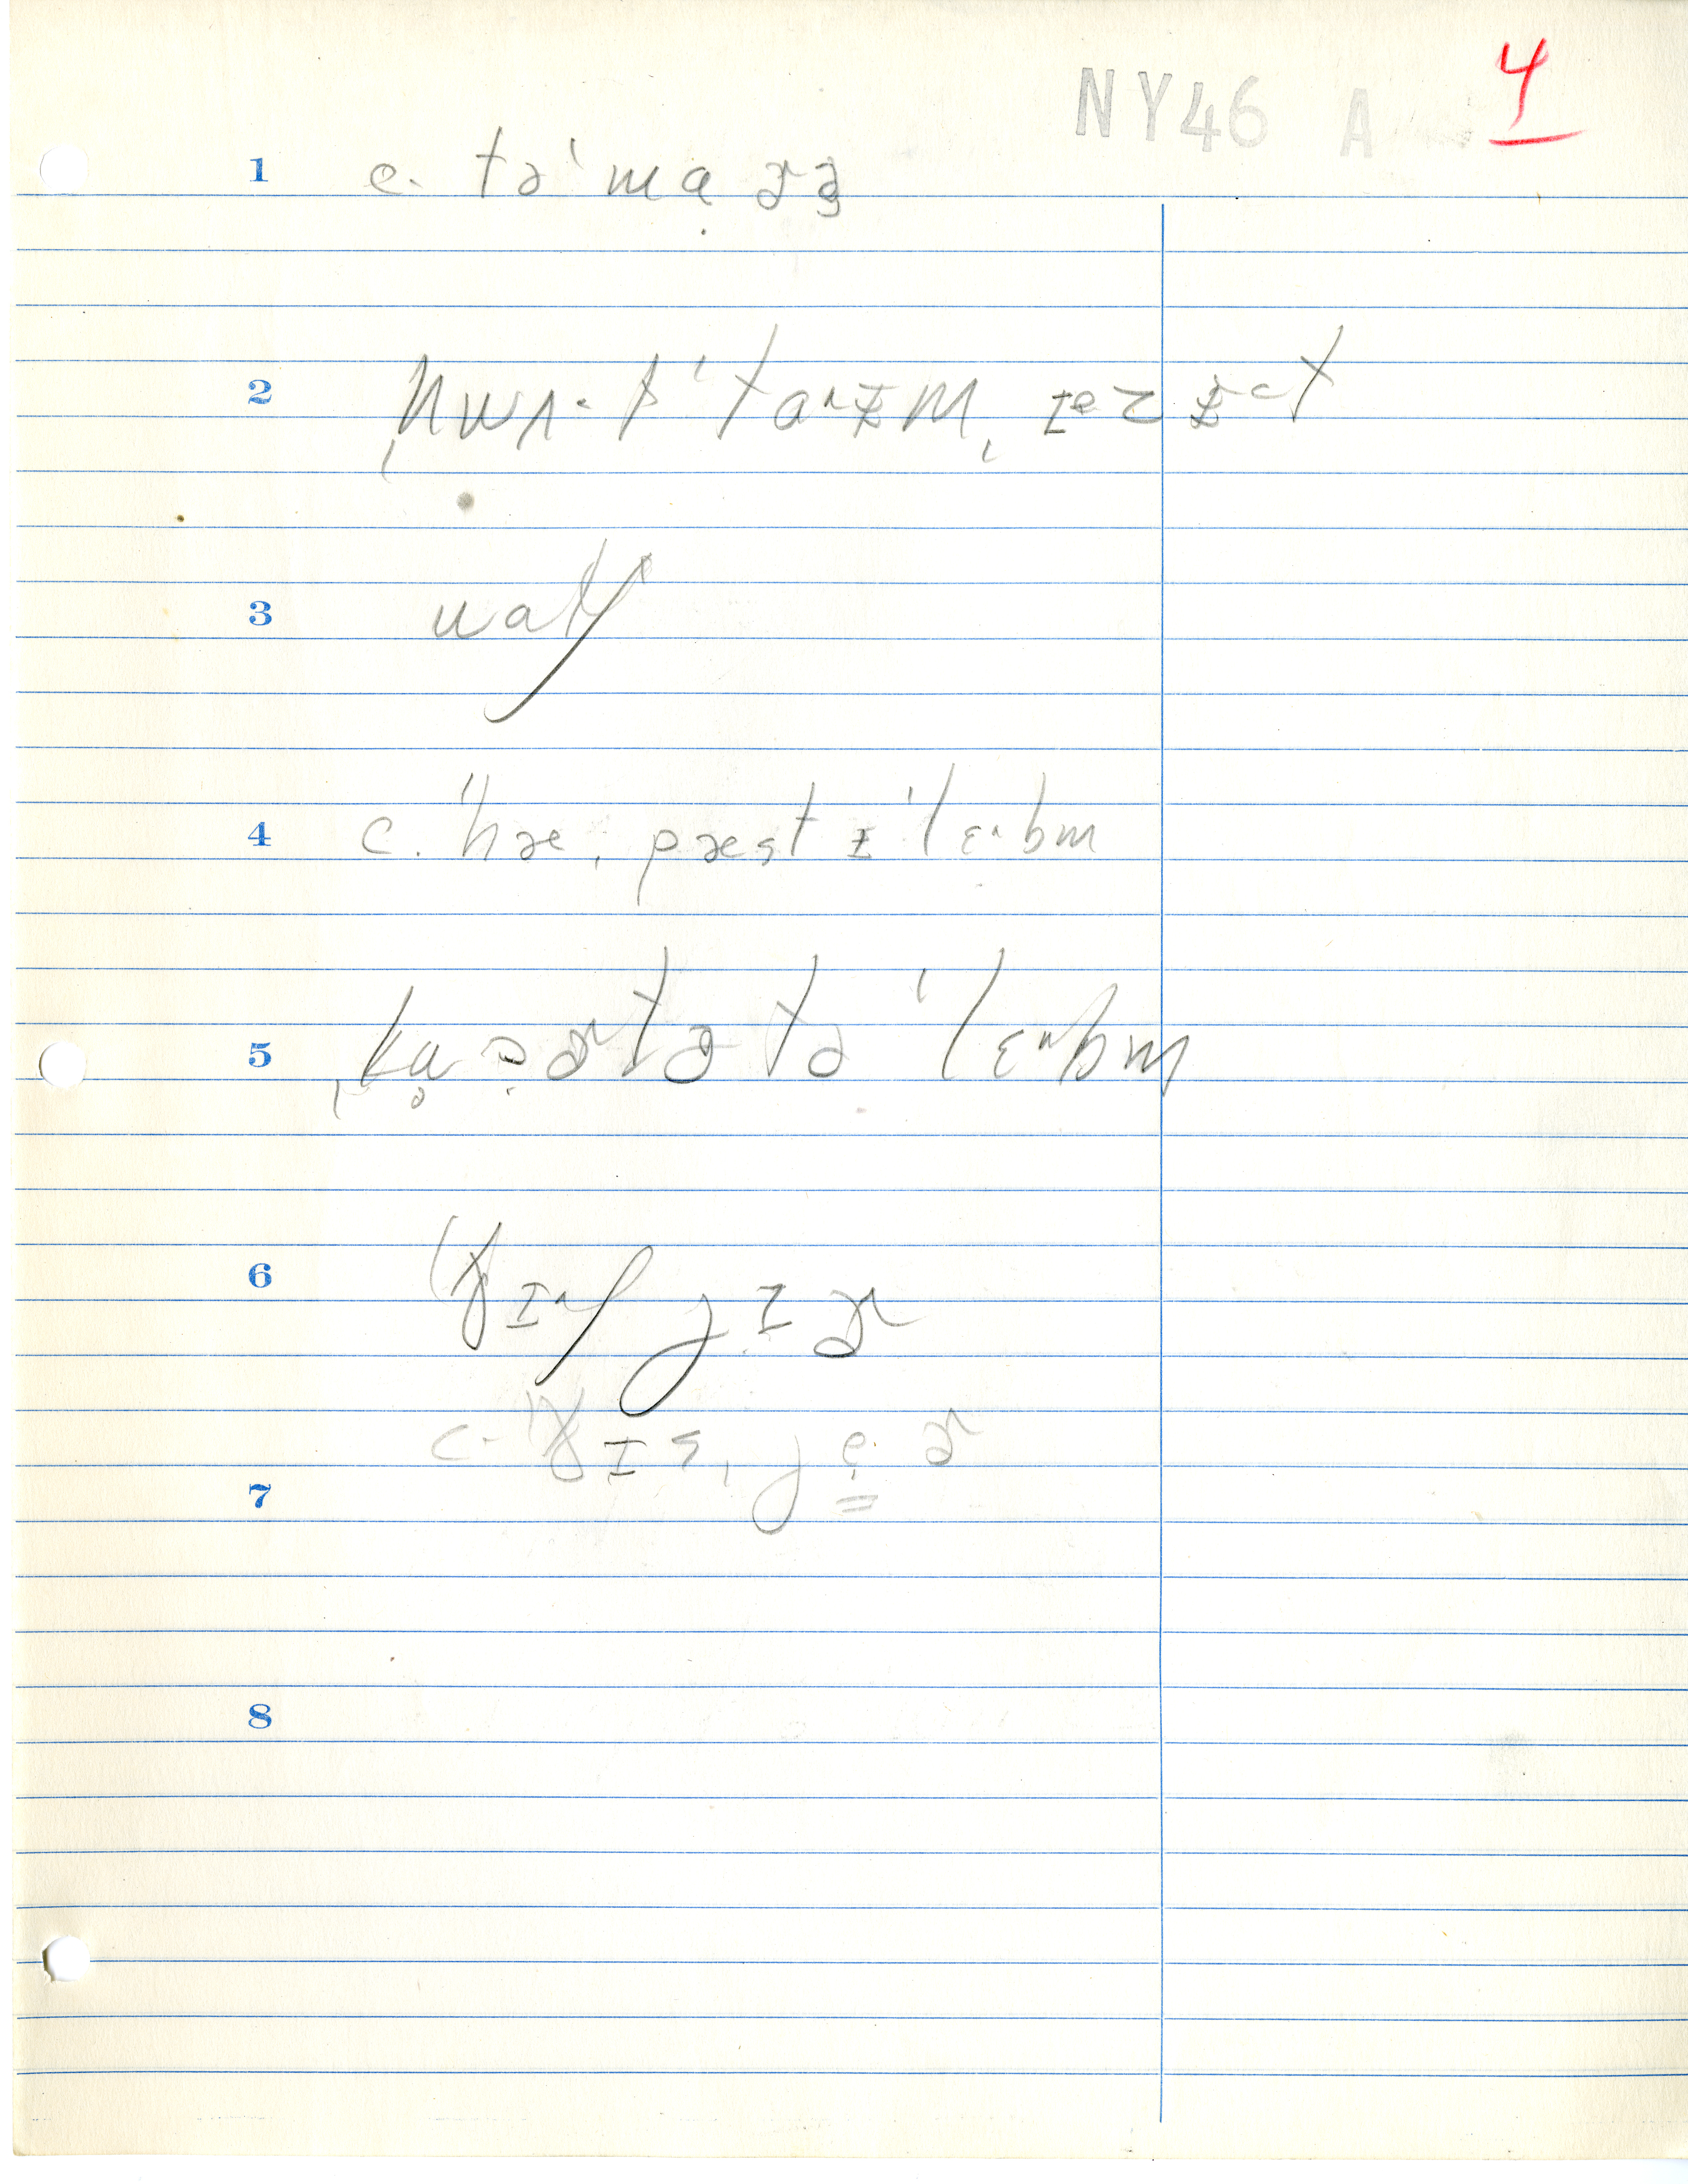 NY46 A 4
1 c. tə ˈma ɚ ə
2 ˌhwʌ· t ˈtaˑɪm, ɪ e z ɪ t
3 watʃ
4 c. ˈhæ, pæst ɪ ˈlɛˑbm
5 ˌkwɔɚtə tə ˈlɛˑbm
6 ˈðɪˑʃ jɪɚ
c. ˈðɪs, jeɚ
7
8